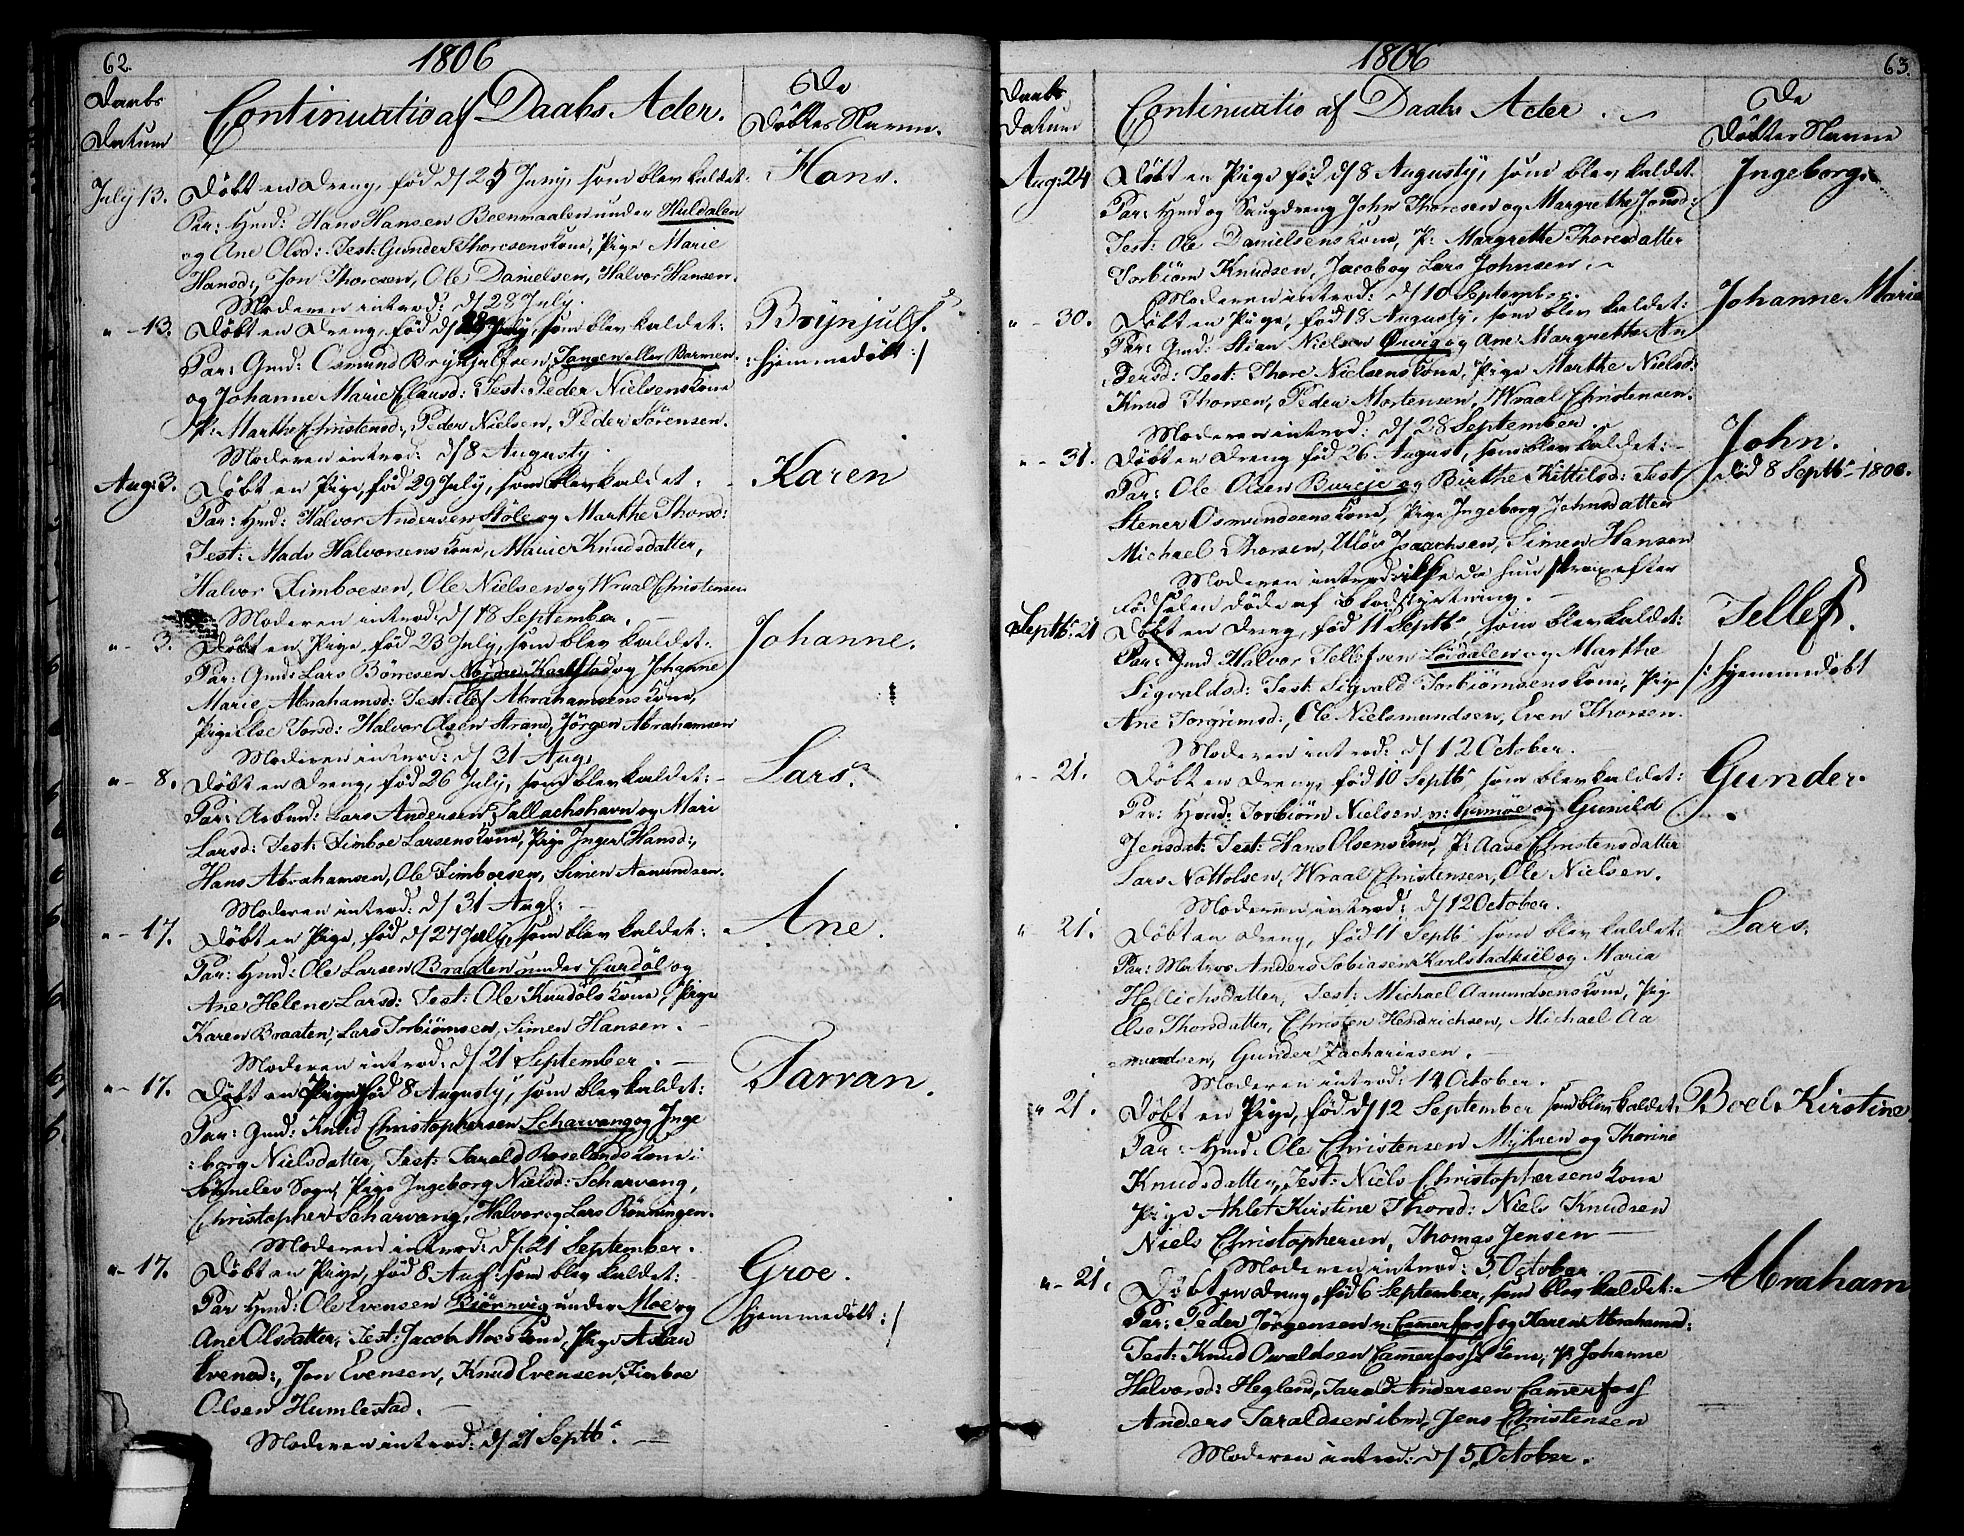 62. 1806
Daabs Datum
Continuatio af Daabs Acter.
De Döbtes Navne.
July 13. Döbt en Dreng, fød d/ 25 Juny, som blev kaldet: Hans.
Par: Hmd: Hans Hansen Beenmaalen under Huldalen
og Ane Olsd: Test: Gunder Thoresens Kone, Pige Marie
Hansd:, Jon Thoresen, Ole Danielsen, Halvor Hansen.
Moderen introd: d/ 28 July.
" - 13. Döbt en Dreng, fød d/ July, som blev kaldet: Brynjulf.
Par: Gmd: Osmund Brynjulfsen, Tangen eller Barmen. hjemmedöbt :/
og Johanne Marie Clausd: Test: Peder Nielsens Kone
P: Marthe Christensd:, Peder Nielsen, Peder Sörensen.
Moderen introd: d/ 8 Augusty.
Aug: 3. Döbt en Pige, fød 29 July, som blev kaldet: Karen
Par: Hmd: Halvor Andersen Stöle og Marthe Thorsd:
Test: Mads Halvorsens Kone, Marie Knudsdatter,
Halvor Timboesen, Ole Nielsen og Wraal Christensen
Moderen introd: d/ 18 September.
" - 3. Döbt en Pige, fød 23 July, som blev kaldet: Johanne.
Par: Gmd: Lars Börresen Nordre Karlstad og Johanne
Marie Abrahamsd: Test: Elef Abrahamsens Kone,
Pige Else Torsd: Halvor Olsen Strand, Jörgen Abrahamsen
Moderen introd: d/ 31 Aug:
" - 8. Döbt en Dreng, fød 26 July, som blev kaldet: Lars.
Par: Arbmd: Lars Andersen Sallachshavn og Mari
Larsd: Test: Timboe Larsens Kone, Pige Inger Hansd:,
Hans Abrahamsen, Ole Timboesen, Simen Aamundsen.
Moderen introd: d/ 31 Aug:
" - 17. Döbt en Pige, fød d/ 27 July, som blev kaldet: Ane.
Par: Hmd: Ole Larsen Braaten under Curdöl og
Ane Helene Larsd: Test: Ole Kurdöls Kone, Pige
Karen Braaten, Lars Torbiörnsen, Simen Hansen.
Moderen introd: d/ 21 September.
" - 17. Döbt en Pige fød 8 Augusty, som blev kaldet: Tarran.
Par: Gmd: Knud Christophersen Scharvang og Inge
:borg Nielsdatter, Test: Tarald Roselands Kone i
Sögnelev Sogn, Pige Ingeborg Nielsd: Scharvang,
Christopher Scharvang, Halvor og Lars Rönningen.
Moderen introd: d/ 21 September.
" - 17. Döbt en Pige, fød 8 Aug: som blev kaldet: Groe.
Par Hmd: Ole Evensen Biönnvig under Moe og hjemmedöbt :/
Ane Olsdatter, Test: Jacob Moes Kone, Pige Aslau
Evensd:, Jon Evensen, Knud Evensen, Timboe
Olsen Humlestad.
Moderen introd: d/ 21 Septb:
1806 63.
Daabs Datum
Continuatio af Daabs Acter.
De Döbtes Navne
Aug: 24 Döbt en Pige fød d/ 8 Augusty, som blev kaldet: Ingeborg.
Par: Hmd og Saugdreng John Thoresen og Margrethe Jonsd:
Test: Ole Danielsens Kone, P: Margrethe Thoresdatter
Torbiörn Knudsen, Jacob og Lars Johnsen.
Moderen introd: d/ 10 Septemb:
" - 30. Döbt en Pige, fød 18 Augusty, som blev kaldet: Johanne Maria
Par: Gmd: Stian Nielsen Örvig og Ane Margrethe An
dersd: Test: Thore Nielsens Kone, Pige Marthe Nielsd:
Knud Thorsen, Peder Mortensen, Wraal Christensen.
Moderen introd: d/ 28 September.
" - 31. Döbt en Dreng fød 26 August, som blev kaldet: John.
Par: Ole Olsen Bureie og Birthe Kittilsd: Test død 8 Septb: 1806.
Stener Osmundsens Kone, Pige Ingeborg Johnsdatter
Michael Thorsen, Ulöv Isaachsen, Simen Hansen
Moderen introd: ikke da hun strax efter
Födselen döde af Blodstyrtning.
Septb: 21 Döbt en Dreng, fød 11 Septb: som blev kaldet: Tellef.
Par: Gmd Halvor Tellefsen Löddalen og Marthe
Sigvaldsd: Test: Sigvald Torbiörnsens Kone, Pige /: hjemmedöbt
Ane Torgrimsd:, Ole Nielsmundsen, Even Thorsen.
Moderen introd: d/ 12 October.
" - 21. Döbt en Dreng, fød 10 Septb: som blev kaldet: Gunder.
Par: Hmd: Torbiörn Nielsen n: Gumöe og Gunild
Jensdat: Test: Hans Olsens Kone, P: Aase Christensdatter
Lars Nottolsen, Wraal Christensen, Ole Nielsen.
Moderen introd: d/ 12 October.
" 21. Döbt en Dreng, fød 11 Septb: som blev kaldet: Lars.
Par: Matros Anders Tobiasen Karlstadkiil og Maria
Hellichsdatter, Test: Michael Aamundsens Kone, Pig
Else Thorsdatter, Christen Hendrichsen, Michael Aa
mundsen, Gunder Zachariasen.
Moderen introd: 14 October.
" 21. Döbt en Pige, fød d/ 12 September som blev kaldet: Boel Kirstine
Par: Hmd: Ole Christensen Myhren og Thorine
Knudsdatter, Test: Niels Christophersens Kone
Pige Ahlet Kirstine Thorsd: Niels Knudsen
Niels Christophersen, Thomas Jensen
Moderen introd: 5 October.
" - 21. Döbt en Dreng, fød 6 September, som blev kaldet: Abraham
Par: Peder Jörgensen v: Camerfoss og Karen Abrahamsd:
Test: Knud Owaldsen Camerfoss Kone, P: Johanne
Halvorsd: Hegland, Tarald Andersen Camerfoss
Anders Taraldsen ibm, Jens Christensen
Moderen introd: d/ 5 October.